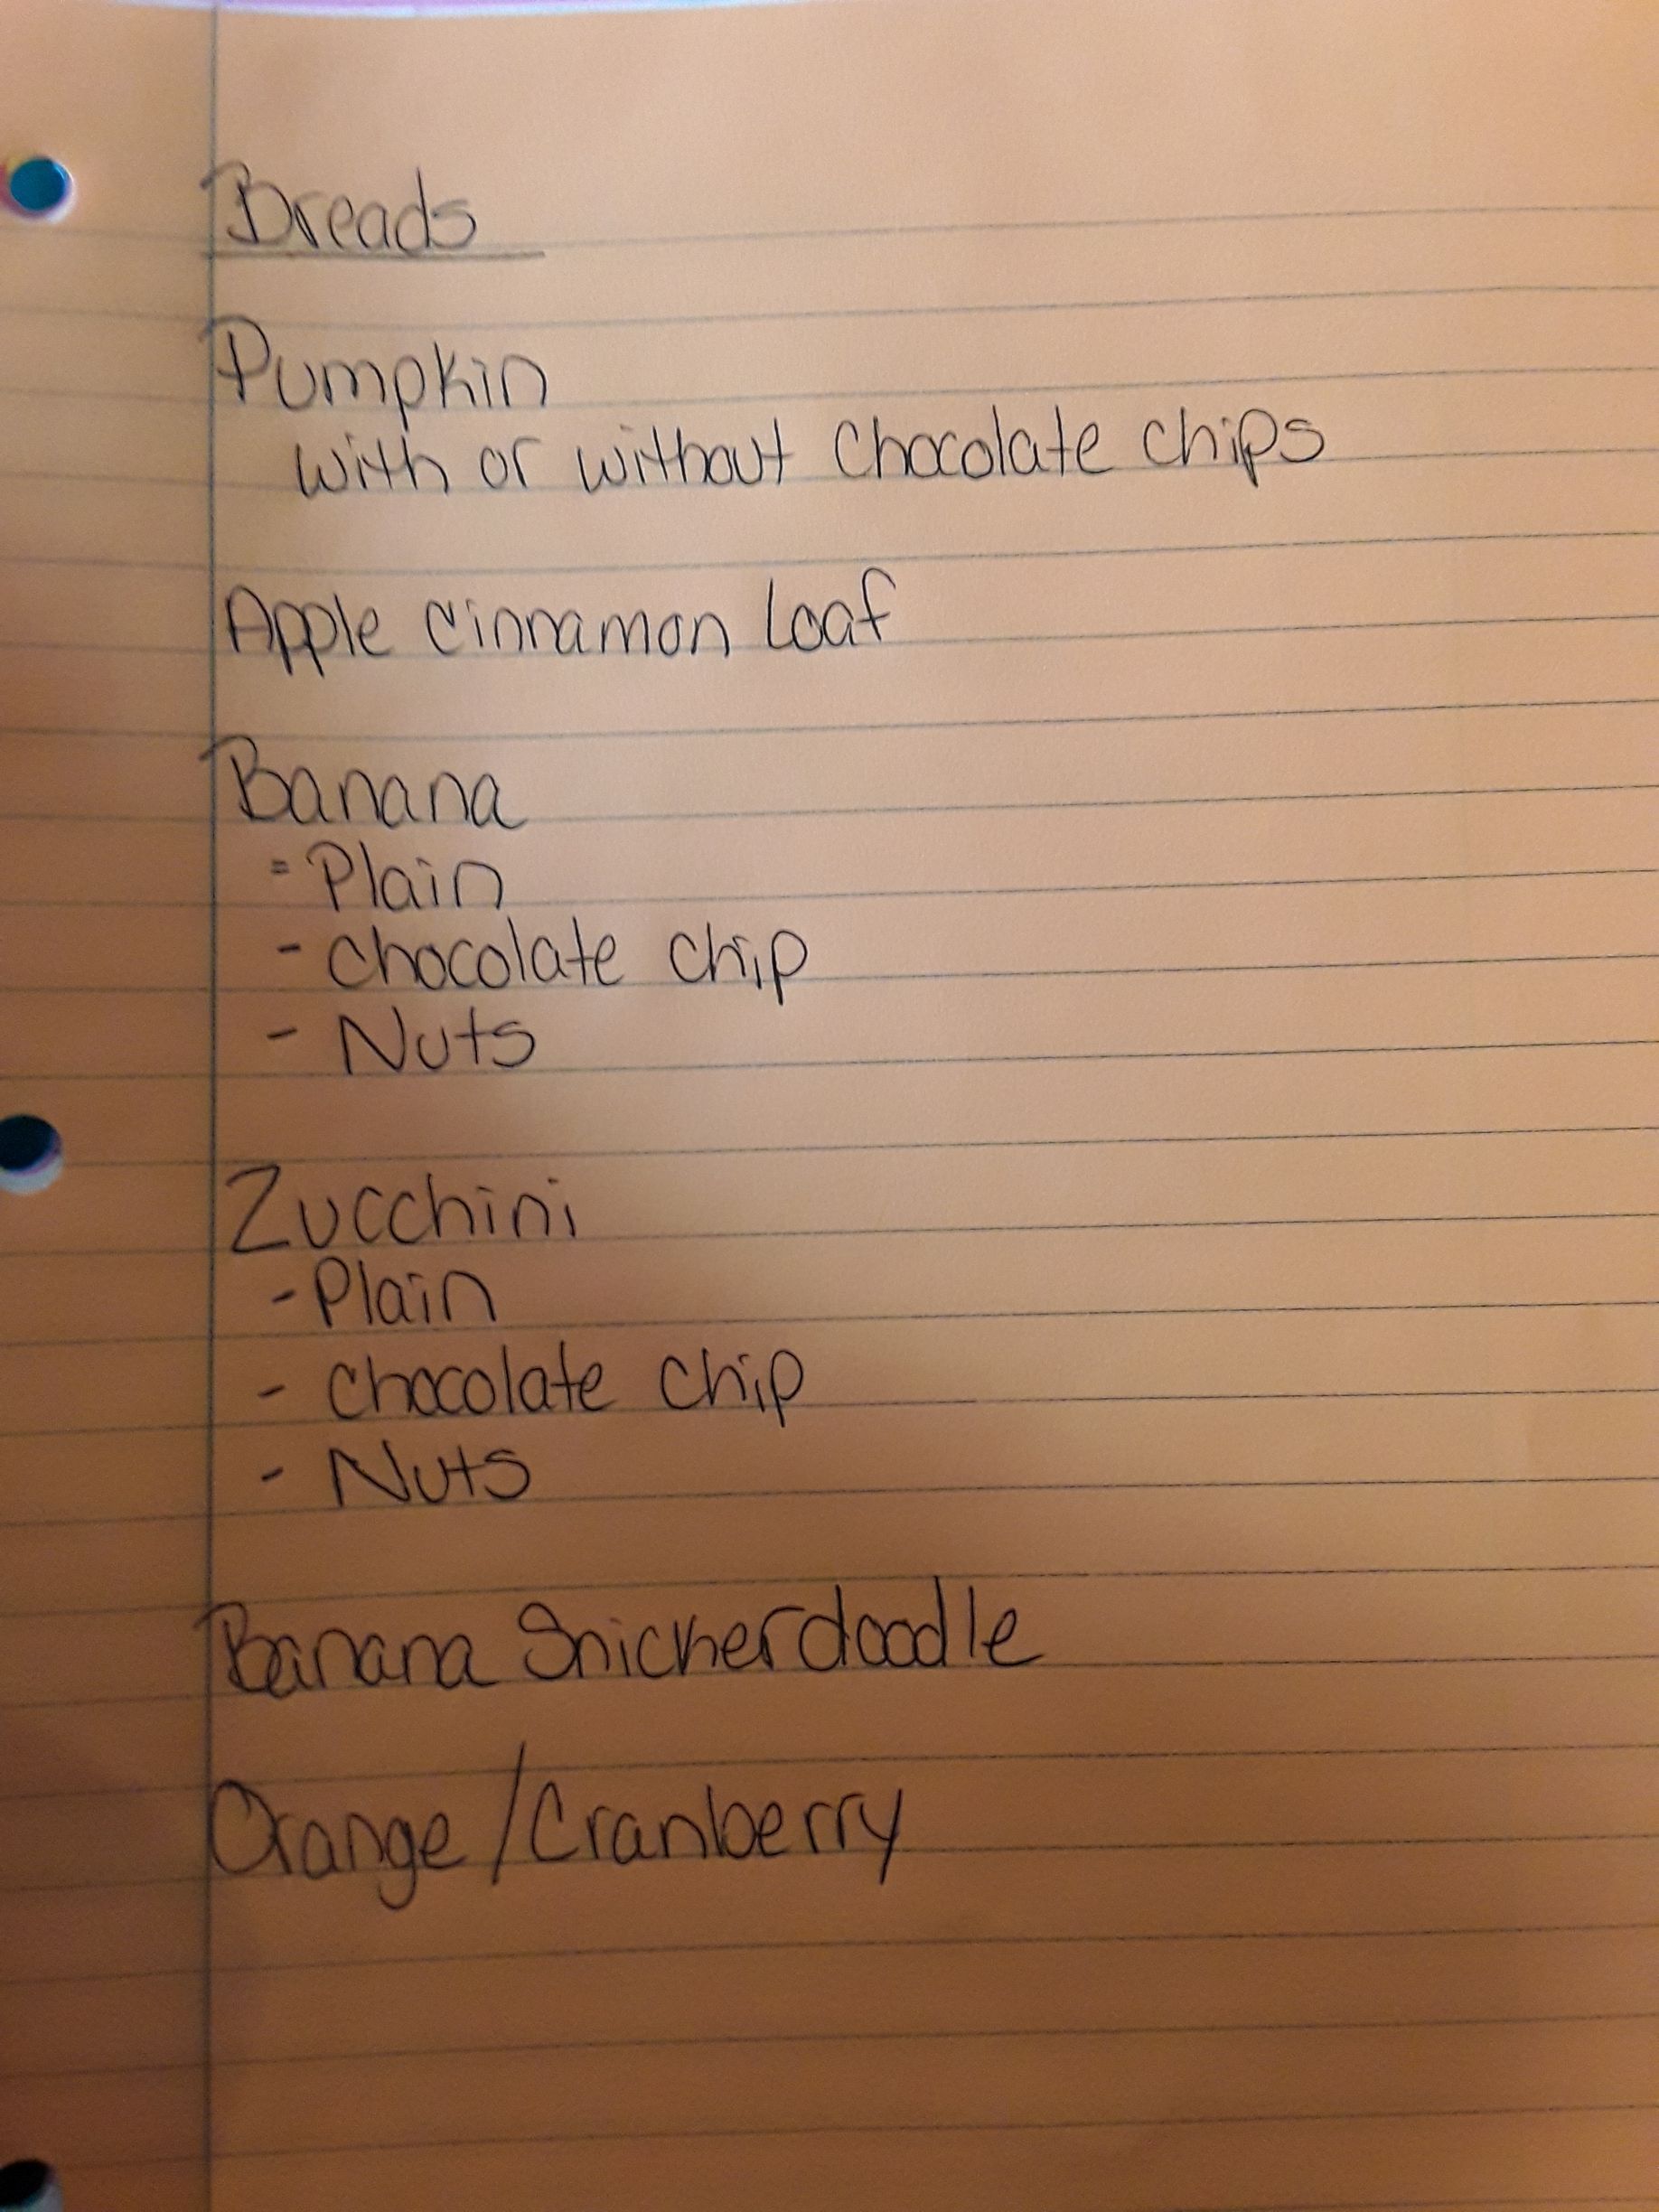 Breads
Pumpkin
with or without Chocolate Chips
Apple Cinnamon Loaf
Banana
- Plain
- Chocolate Chip
- Nuts
Zucchini
- Plain
- Chocolate Chip
- Nuts
Banana Snickerdoodle
Orange/Cranberry